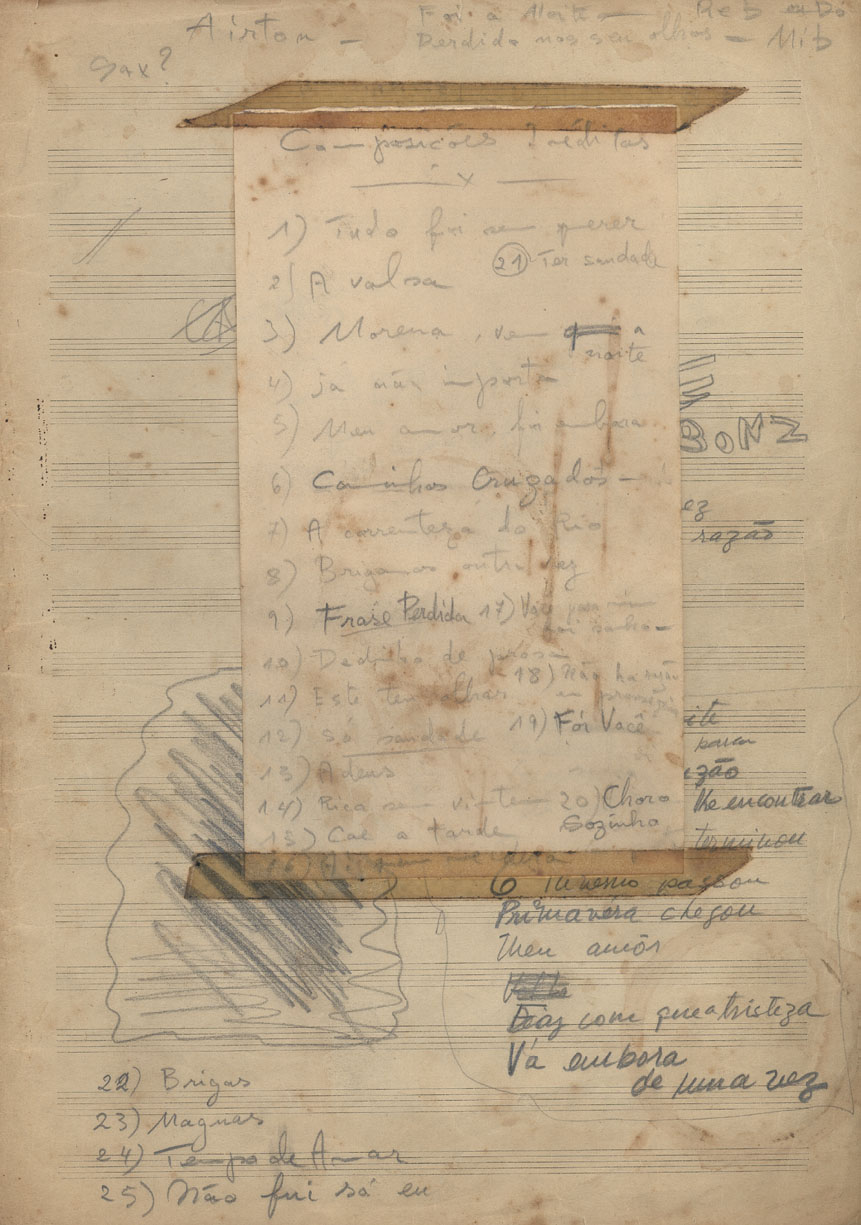 Airton — Foi a Noite — Reb ou Dó
Perdido nos seu olhos — Mib
Sax?
Composições Inéditas
x
1) Tudo foi sem querer
21 Ter saudade
2) A valsa
3) Morena, vem a
noite
4) já não importa
5) Meu amor foi embora
6) Caminhos Cruzados —
BONZ
7) A correnteza do Rio
ez
razão
8) Brigamos outra vez
9) Frase Perdida 17) Você para mim
foi sonho —
10) Dedinho de prosa
18) Não há razão
11) Este teu olhar
12) só saudade 19) Fói Você
ite
para
13) Adeus
zão
14) Rica sem vintem 20) Choro
Sozinho
lhe encontrar
15) Cae a tarde
terminou
16)
O inverno passou
Primavera chegou
Meu amôr
Diaz com que a tristeza
Vá embora
de uma vez
22) Brigas
23) Maguas
24) Tempo de Amar
25) Não fui só eu